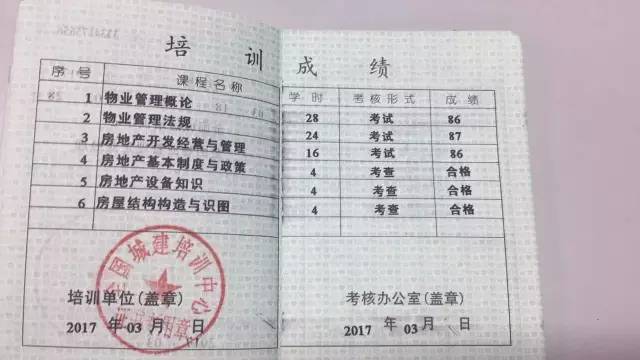 培训成绩
序号 课程名称 学时 考核形式 成绩
1 物业管理概论 28 考试 86
2 物业管理法规 24 考试 87
3 房地产开发经营与管理 16 考试 86
4 房地产基本制度与政策 4 考查 合格
5 房地产设备知识 4 考查 合格
6 房屋结构构造与识图 4 考查 合格
城建培训中心
用章
培训单位(盖章) 考核办公室(盖章)
2017 年 03 月 日 2017 年 03 月 日